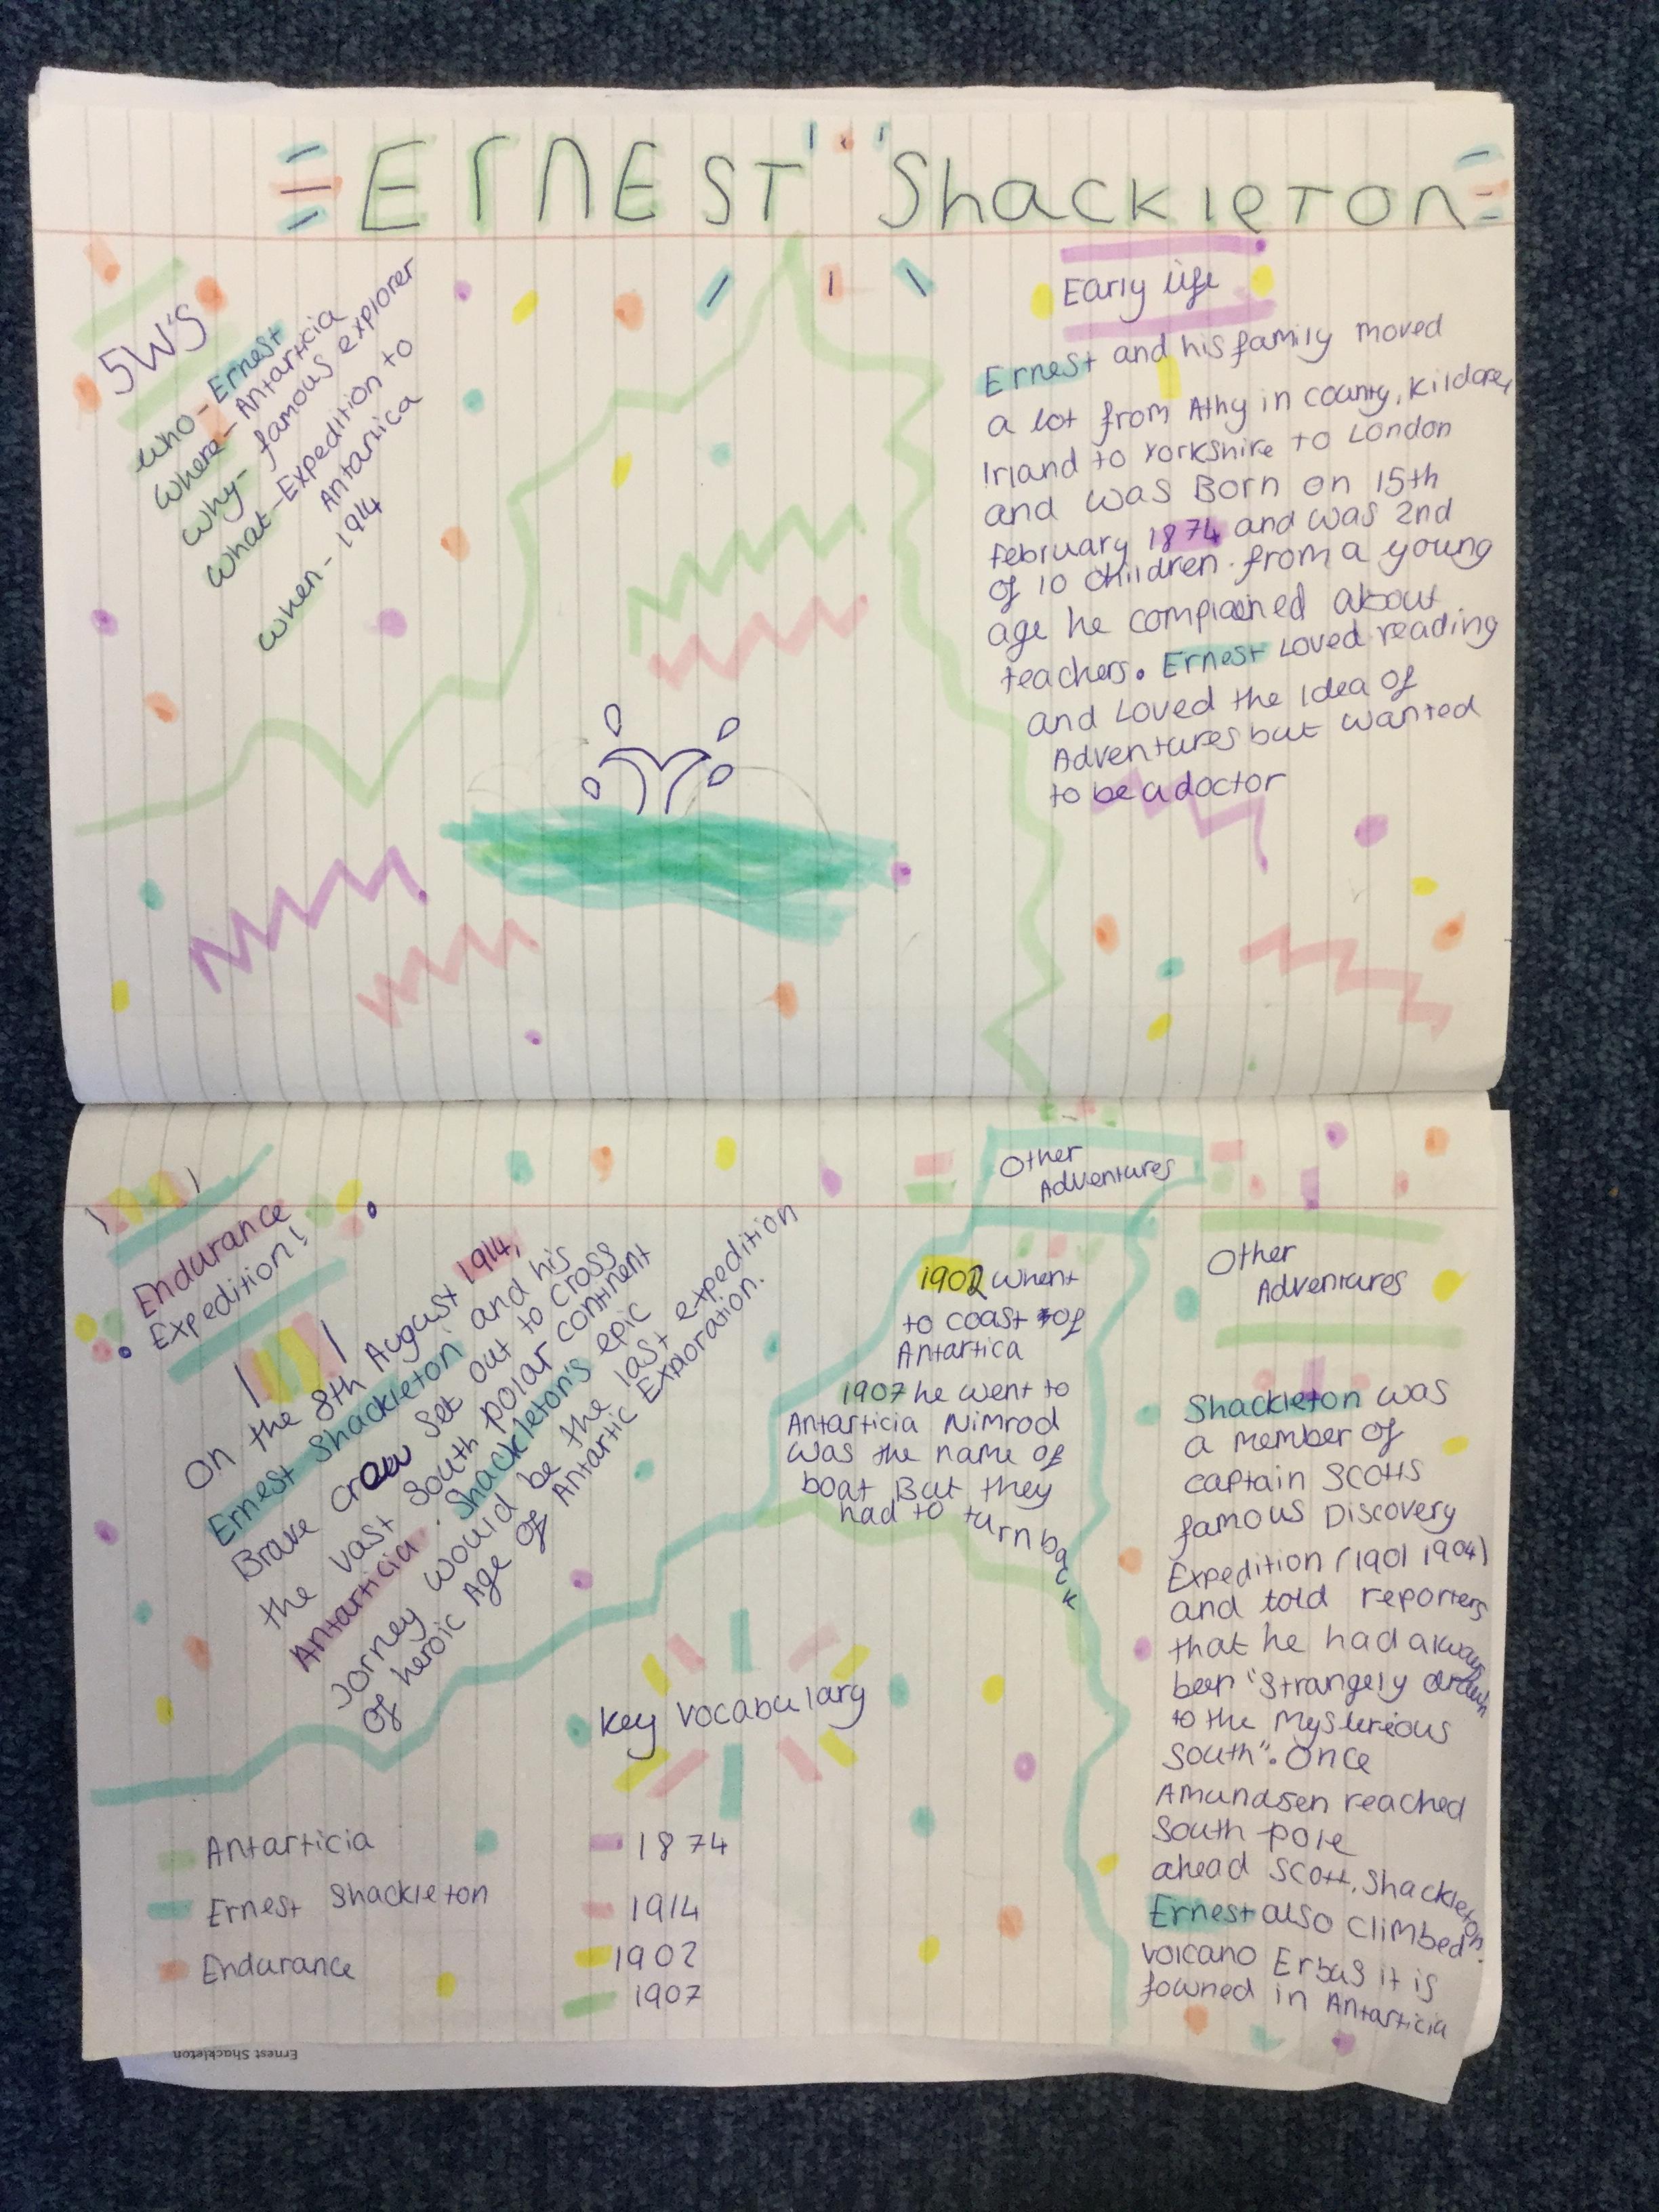 ERNEST Shackleton
5W'S
Who - Ernest
Where - Antarticia
Why - famous explorer
What - Expedition to
Antartica
When - 1914
Early life
Ernest and his family moved
a lot from Athy in county, Kildare,
Irland to Yorkshire to London
and was Born on 15th
february 1874 and was 2nd
of 10 children. from a young
age he complained about
teachers. Ernest Loved reading
and Loved the Idea of
Adventures but wanted
to be a doctor
Endurance
Expedition!
On the 8th August 1914,
Ernest Shackleton and his
Brave crew set out to cross
the vast South polar continent
Antarticia. Shackleton's epic
Jorney would be the last expedition
of heroic Age of Antartic Exploration.
Other
Adventures
1902 when+
to coast of
Antartica
1907 he went to
Antarticia Nimrod
was the name of
boat But they
had to turn back
Other
Adventures
Shackleton was
a member of
captain Scotts
famous Discovery
Expedition (1901 1904)
and told reporters
that he had always
been "Strangely drawn
to the Mysterious
South". Once
Amundsen reached
South pole
ahead Scott, Shackleton.
Ernest also climbed
volcano Erbus it is
fowned in Antarticia
key vocabulary
Antarticia
Ernest Shackleton
Endurance
1874
1914
1902
1907
Ernest Shackleton